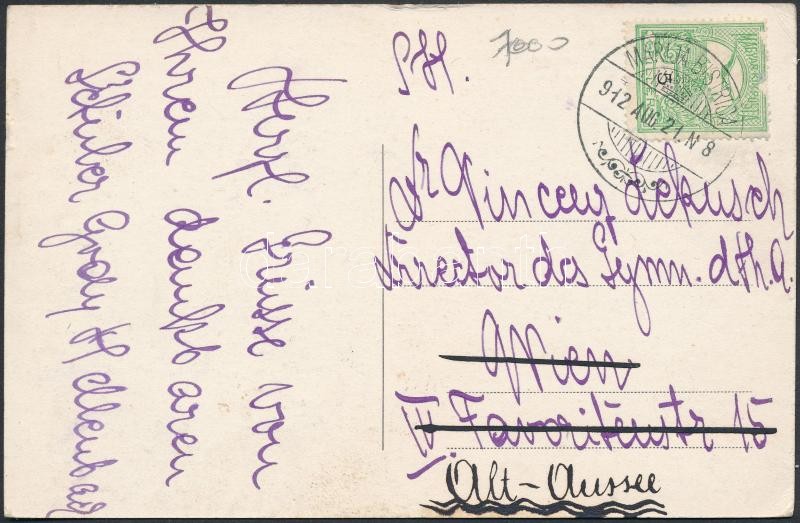 Herzl. Grüsse von
Ihrem dankbaren
Schüler
P.H.
7000
MARIJA BISTRICA
912 AUG. 21. N 8
5
Dr Vincenz Lekusch
Director des Gymn. d. Th. A.
Wien
IV. Favoritenstr 15
Alt-Aussee